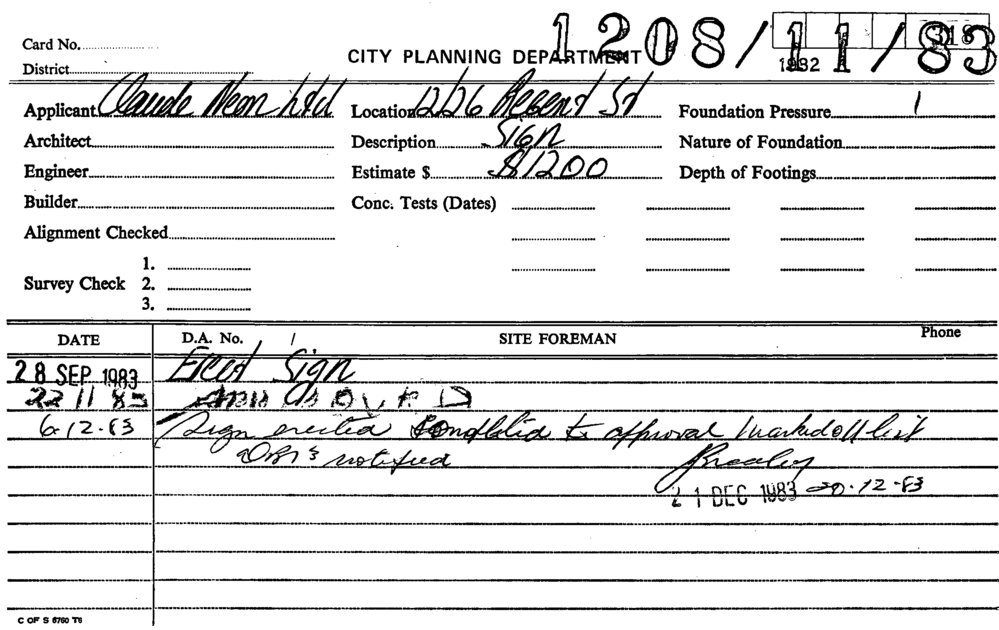 1208/11/83
Card No.
318
CITY PLANNING DEPARTMENT
1982
District
Applicant Claude Neon Ltd Location Regent St Foundation Pressure
Architect Description Sign Nature of Foundation
Engineer Estimate $ $1200 Depth of Footings
Builder Conc. Tests (Dates)
Alignment Checked
1.
Survey Check 2.
3.
DATE D.A. No. SITE FOREMAN Phone
28 SEP 1983 Erect Sign
22 11 83 APPROVED
6-12-83 Sign erected to approval marked off list
notified
21 DEC 1983 20-12-83
C OF S 6760 T6